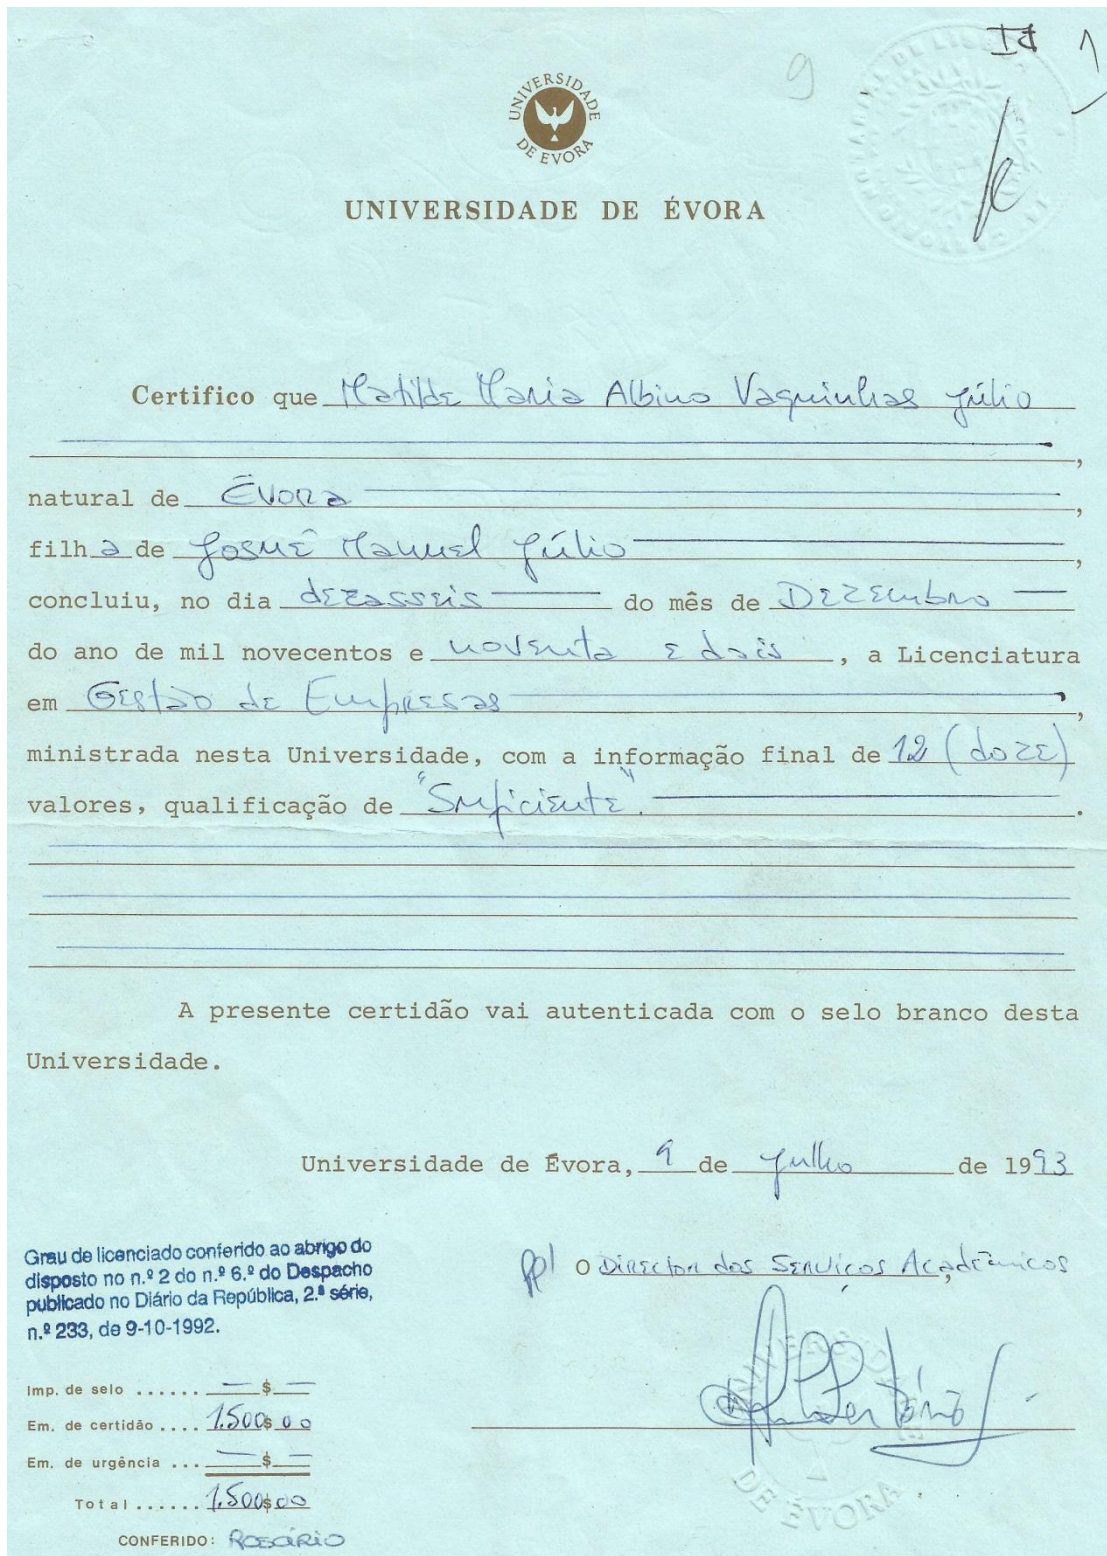 II 1
9
UNIVERSIDADE DE EVORA
UNIVERSIDADE DE ÉVORA
Certifico que Matilde Maria Albino Vaquinhas Júlio
,
natural de Évora,
filha de Josué Manuel Júlio,
concluiu, no dia dezasseis do mês de Dezembro
do ano de mil novecentos e noventa e dois, a Licenciatura
em Gestão de Empresas,
ministrada nesta Universidade, com a informação final de 12 (doze)
valores, qualificação de "Suficiente".
A presente certidão vai autenticada com o selo branco desta
Universidade.
Universidade de Évora, 9 de Julho de 1993
Grau de licenciado conferido ao abrigo do
disposto no n.º 2 do n.º 6.º do Despacho
publicado no Diário da República, 2.ª série,
n.º 233, de 9-10-1992.
ppl o Director dos Serviços Académicos
Imp. de selo ...... — $ —
Em. de certidão .... 1.500$00
Em. de urgência ... — $ —
Total ...... 1.500$00
CONFERIDO: ROSÁRIO
DE ÉVORA